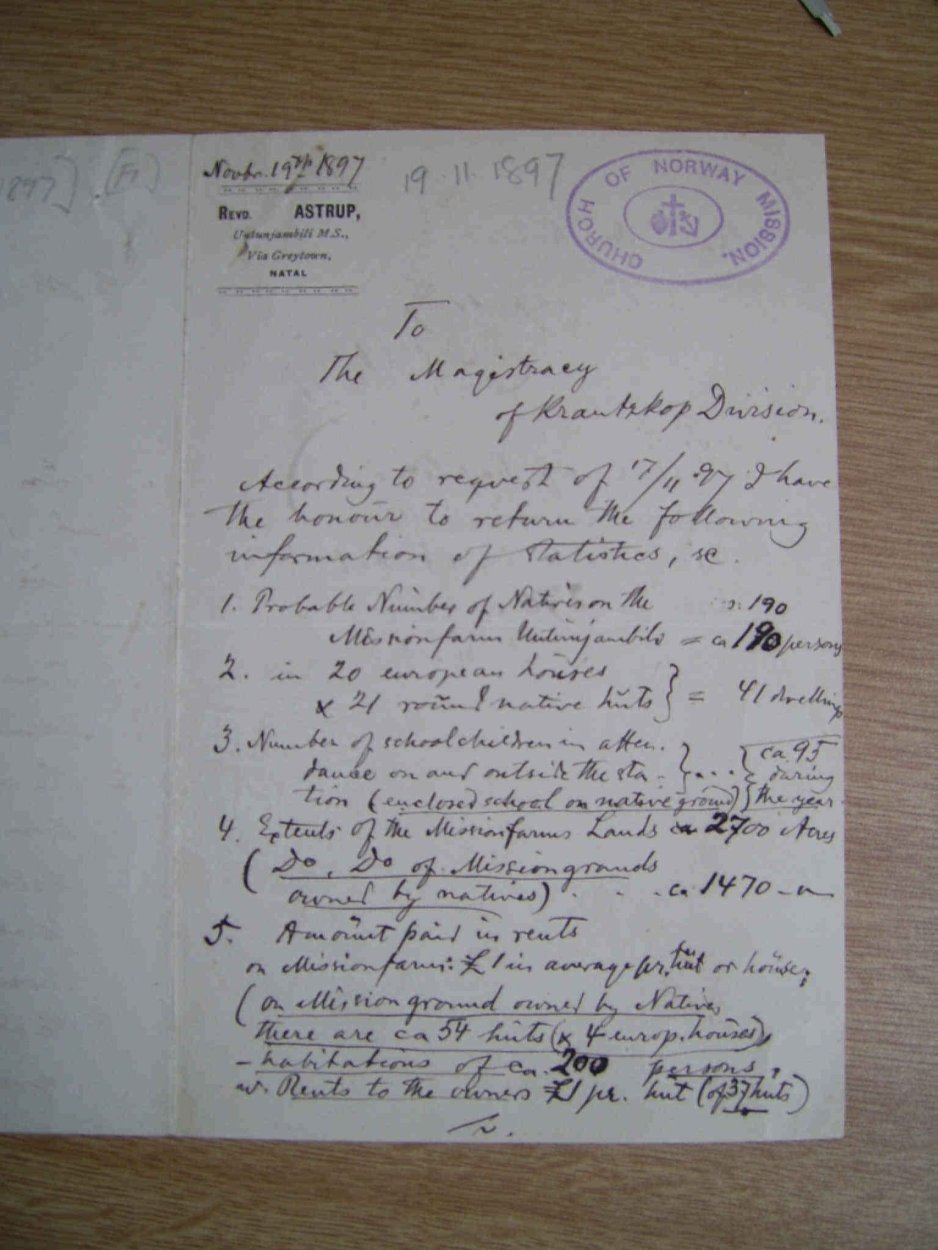 Novbr. 19th 1897
19.11.1897
CHURCH OF NORWAY MISSION.
REVD. ASTRUP,
Untunjambili M.S.,
Via Greytown,
NATAL
To
The Magistracy
of Krantzkop Division.
According to request of 17/11 97 I have
the honour to return the following
information of statistics, sc.
1. Probable Number of Natives on the 190
Missionfarm Untunjambili = ca 190 persons
2. in 20 european houses
& 21 round native huts } = 41 dwellings
3. Number of schoolchildren in atten- ca 95
dance on and outside the sta- } . . . { during
tion (enclosed school on native ground) the year
4. Extents of the Missionfarms Lands ca 2700 Acres
( Do, Do of Missiongrounds
owned by natives) . . . ca 1470 -"-
5. Amount paid in rents
on Missionfarm: £1 in average pr. hut or house;
(on Mission ground owned by Natives
there are ca 54 huts (& 4 europ. houses),
- habitations of ca. 200 persons,
w. Rents to the owners £1 pr. hut (of 37 huts)